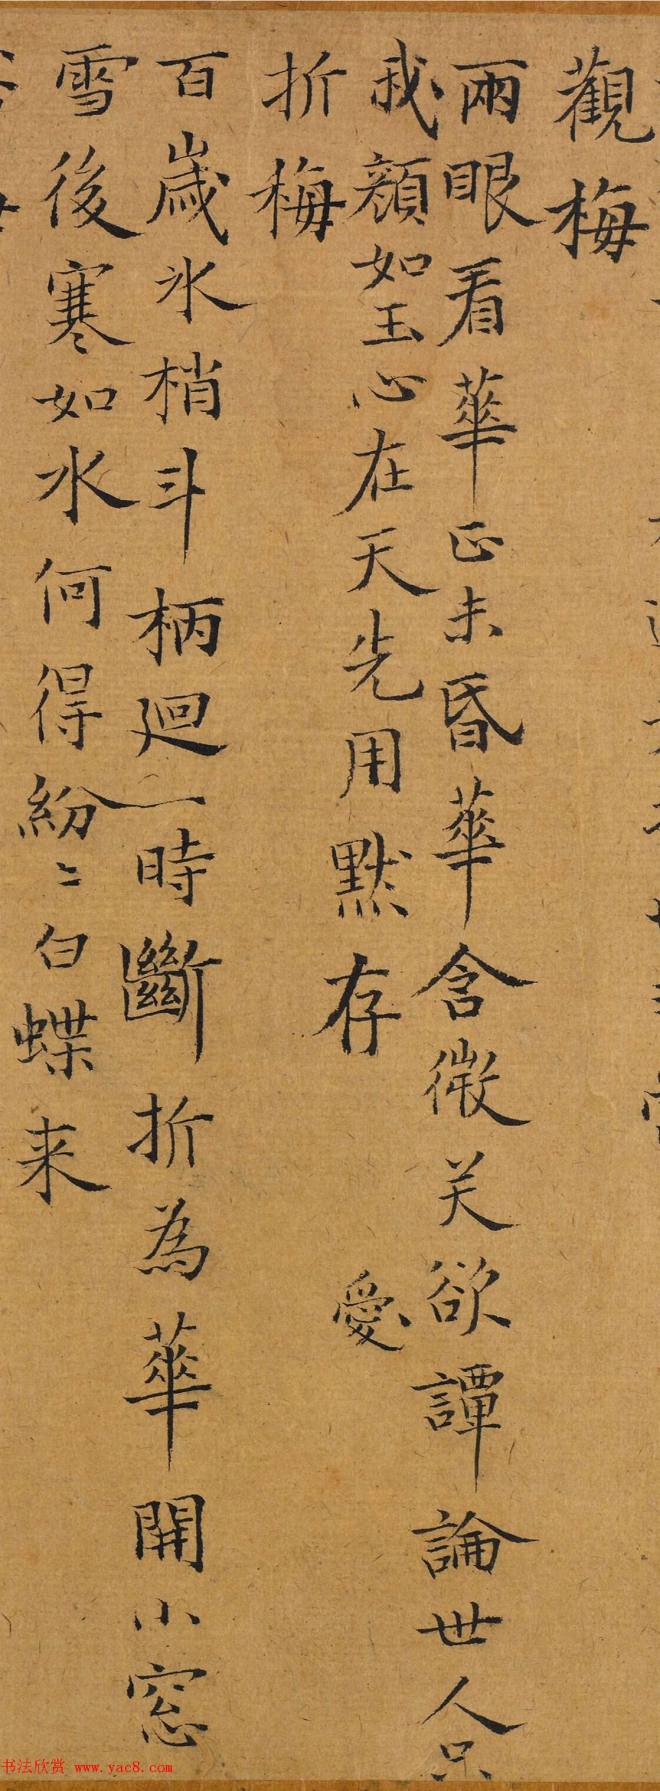 觀梅
兩眼看華正未昏華含微关欲譚論世人只
我顏如玉心在天先用默存 愛
折梅
百歲氷梢斗柄迴一時斷折為華開小窓
雪後寒如水何得紛〻白蝶来
书法欣赏 www.yac8.com